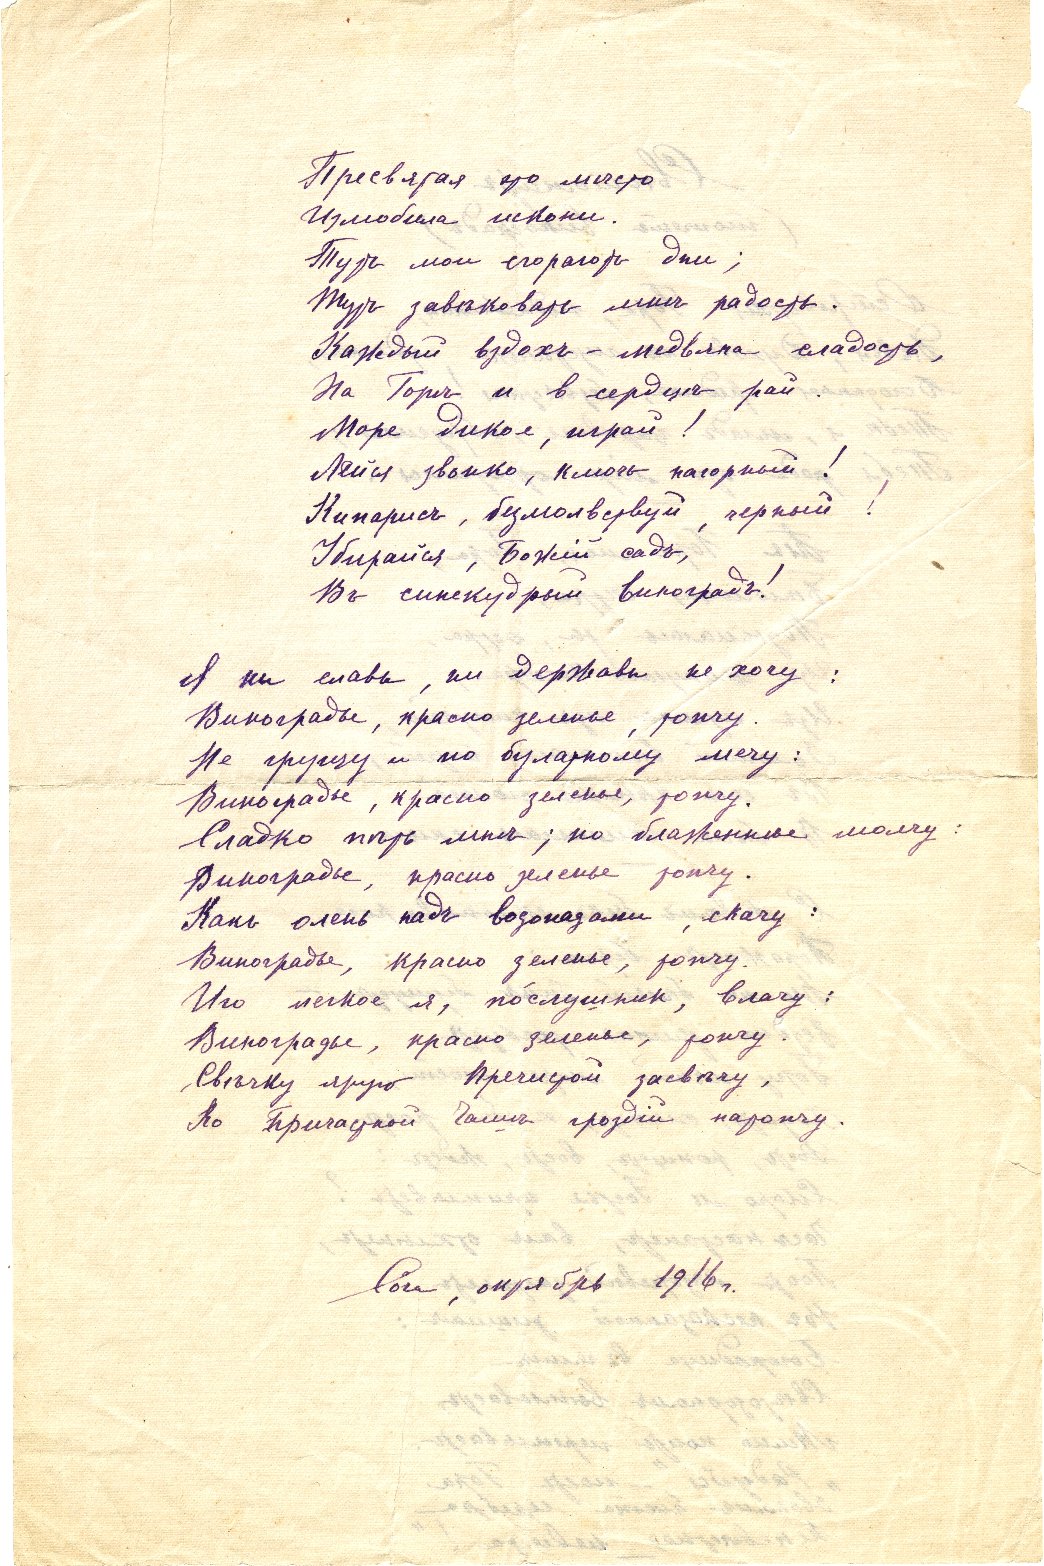 Пресвятая то мѣсто
Излюбила искони.
Тутъ мои сгораютъ дни;
Тутъ завѣковать мнѣ радость.
Каждый вздохъ – медвяна сладость,
На Горѣ и в сердцѣ рай.
Море дикое, играй!
Лейся звонко, ключъ нагорный!
Кипарисъ, безмолвствуй, черный!
Убирайся, Божій садъ,
Въ синекудрый виноградъ!
Я ни славы, ни державы не хочу:
Виноградье, красно зеленье, топчу.
Не грущу и по булатному мечу:
Виноградье, красно зеленье, топчу.
Сладко пѣть мнѣ; но блаженнѣе молчу:
Виноградье, красно зеленье топчу.
Какъ олень надъ водопадами, скачу:
Виноградье, красно зеленье, топчу.
Иго легкое я, по́слушник, влачу:
Виноградье, красно зеленье, топчу.
Свѣчку яру Пречистой засвѣчу,
Ко Причастной Чашѣ гроздій натопчу.
Сочи, октябрь 1916 г.